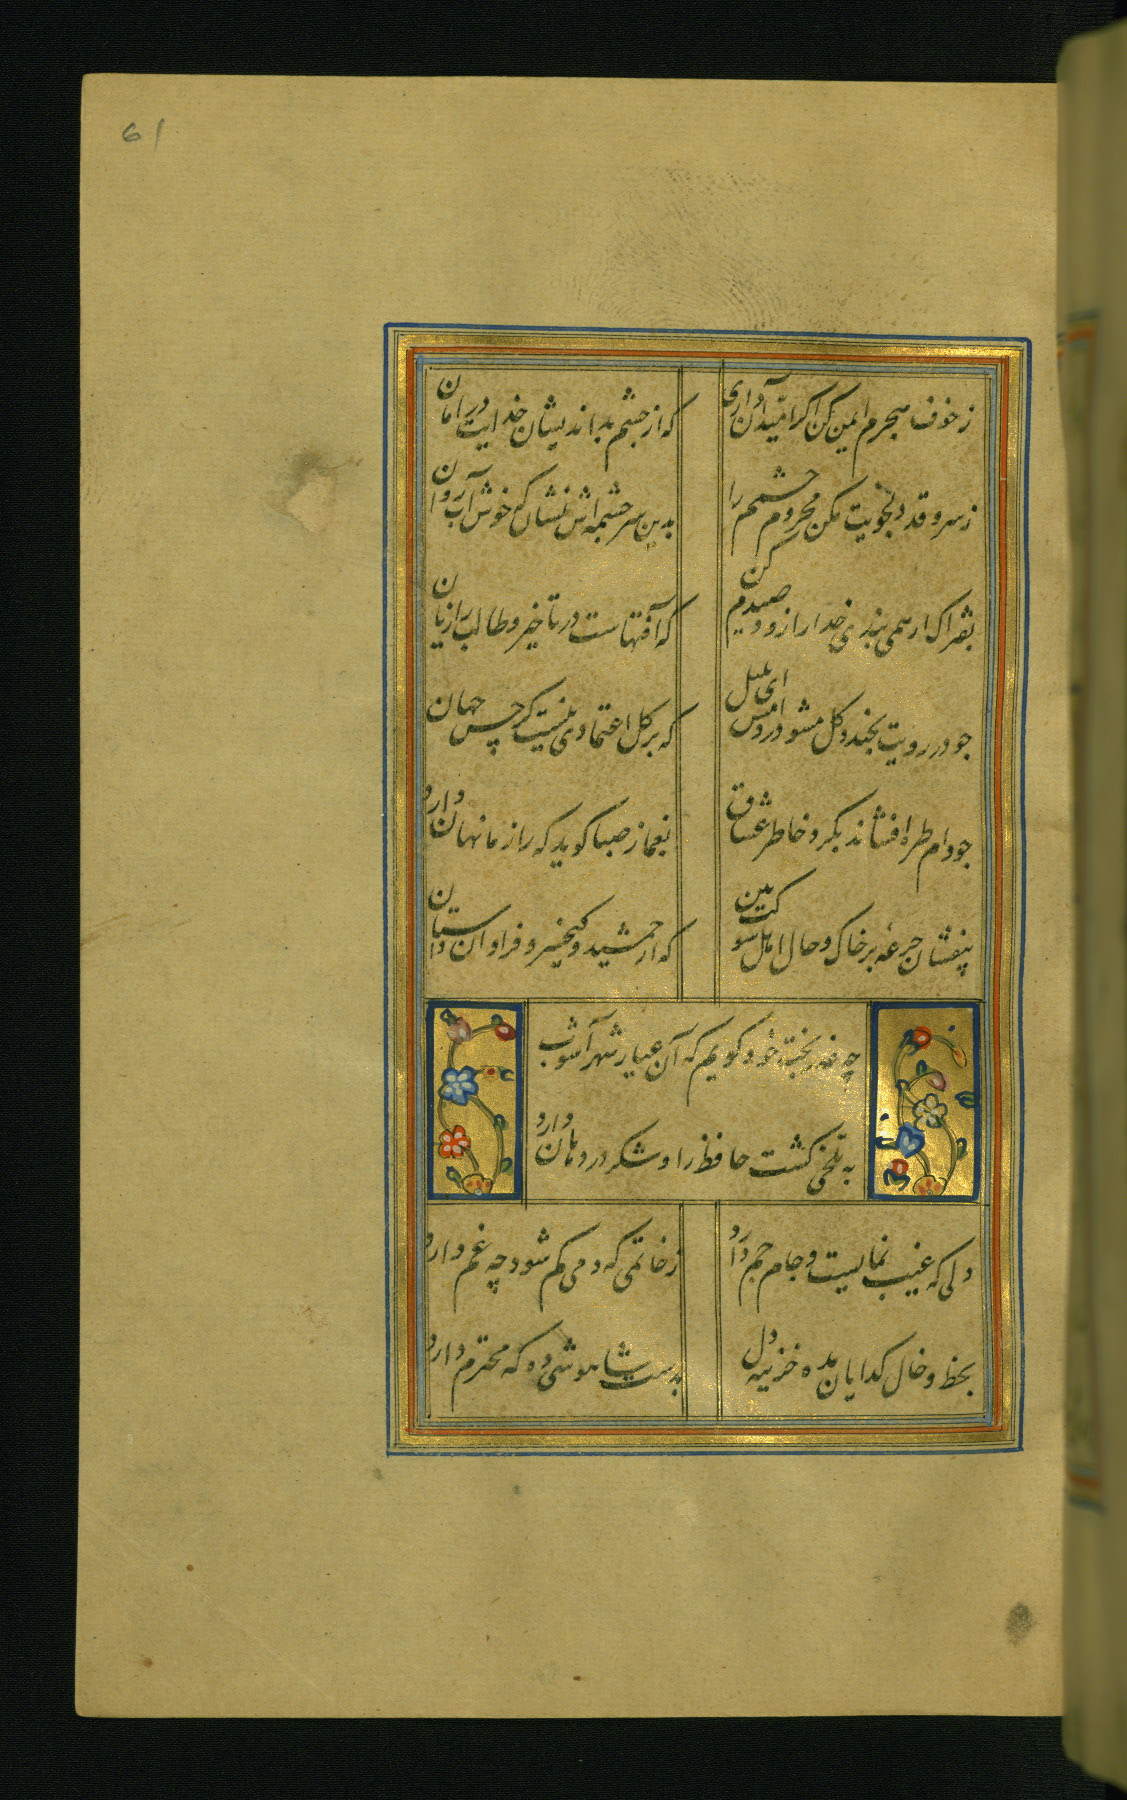 61
ز خوف هجرم ایمن کن اگر امید آن داری
که از چشم بد اندیشان خدایت در امان
ز سرو قد دلجویت مکن محروم چشمم را
بدین سرچشمه اش بنشان که خوش آب روان
بفتراک ار همی بندی خدا را زود صیدم کن
که آفتهاست در تاخیر و طالب را زیان
چو در رویت بخندد گل مشو در دامش ای بلبل
که بر گل اعتمادی نیست گر حسن جهان
چو دام طره افشاند ز گرد خاطر عشاق
بغماز صبا گوید که راز ما نهان دارد
بیفشان جرعه بر خاک و حال اهل شوکت بین
که از جمشید و کیخسرو فراوان داستان
چه عذر بخت خود گویم که آن عیار شهر آشوب
به تلخی کشت حافظ را و شکر در دهان دارد
دلی که غیب نمایست و جام جم دارد
ز خاتمی که دمی گم شود چه غم دارد
بخط و خال گدایان مده خزینه دل
بدست شاهوشی ده که محترم دارد